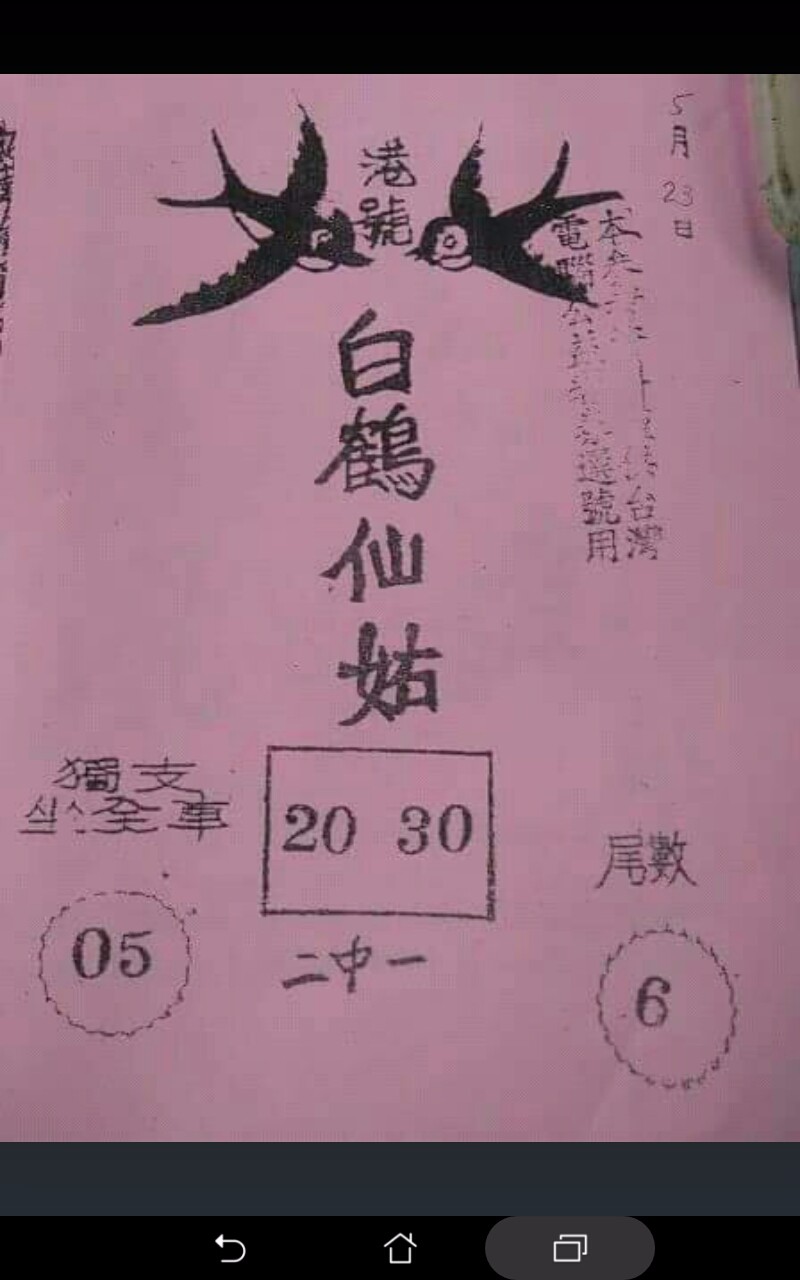 5月23日
港號
本參
電腦公益彩券選號用
台灣
白鶴仙姑
獨支
全車
20 30
尾數
05
二中一
6